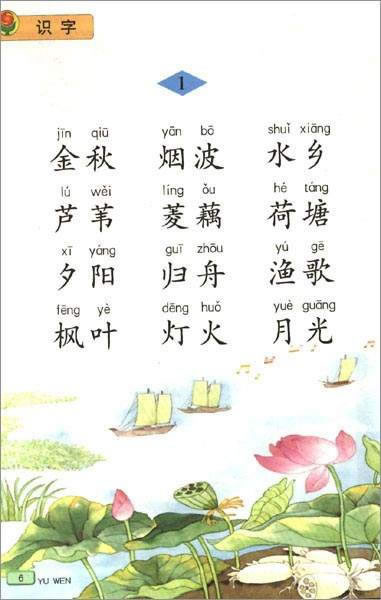 识字
1
jīn qiū yān bō shuǐ xiāng
金秋 烟波 水乡
lú wěi líng ǒu hé táng
芦苇 菱藕 荷塘
xī yáng guī zhōu yú gē
夕阳 归舟 渔歌
fēng yè dēng huǒ yuè guāng
枫叶 灯火 月光
6 YU WEN